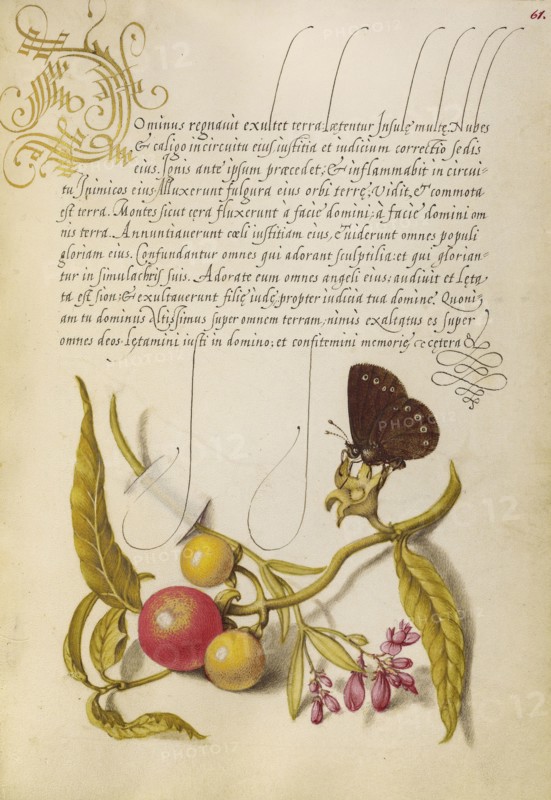 61.
Dominus regnauit exultet terra: Lætentur Insulę multę. Nubes
& caligo in circuitu eius: iustitia et iudicium correctio sedis
eius. Ignis ante ipsum præcedet; & inflammabit in circui-
tu Inimicos eius. Illuxerunt fulgura eius orbi terrę: Vidit, & commota
est terra. Montes sicut cęra fluxerunt à facie domini: à facie domini om
nis terra. Annuntiauerunt cœli iustitiam eius, & uiderunt omnes populi
gloriam eius. Confundantur omnes qui adorant sculptilia: et qui glorian-
tur in simulachris suis. Adorate eum omnes angeli eius: audiuit et Lęta
ta est sion: & exultauerunt filię iudę, propter iudicia tua domine. Quoni
am tu dominus Altissimus super omnem terram, nimis exaltatus es super
omnes deos. Lętamini iusti in domino; et confitemini memorię &
PHOTO12